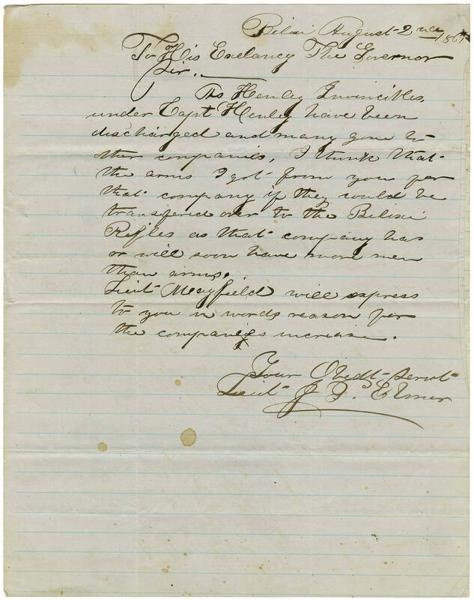 Biloxi August 2nd 1861
To His Exelancy The Governor
Sir,
As Henley Invincibles,
under Capt Henley have been
discharged and many gone to
other companies, I think that
the arms I got from you for
that company if they would be
transfered over to the Biloxi
Rifles as that company has
or will soon have more men
than arms.
Lieut Mayfield will express
to you in words reason for
the companies increase.
Your Obedt Servt
Lieut J. F. Elmer